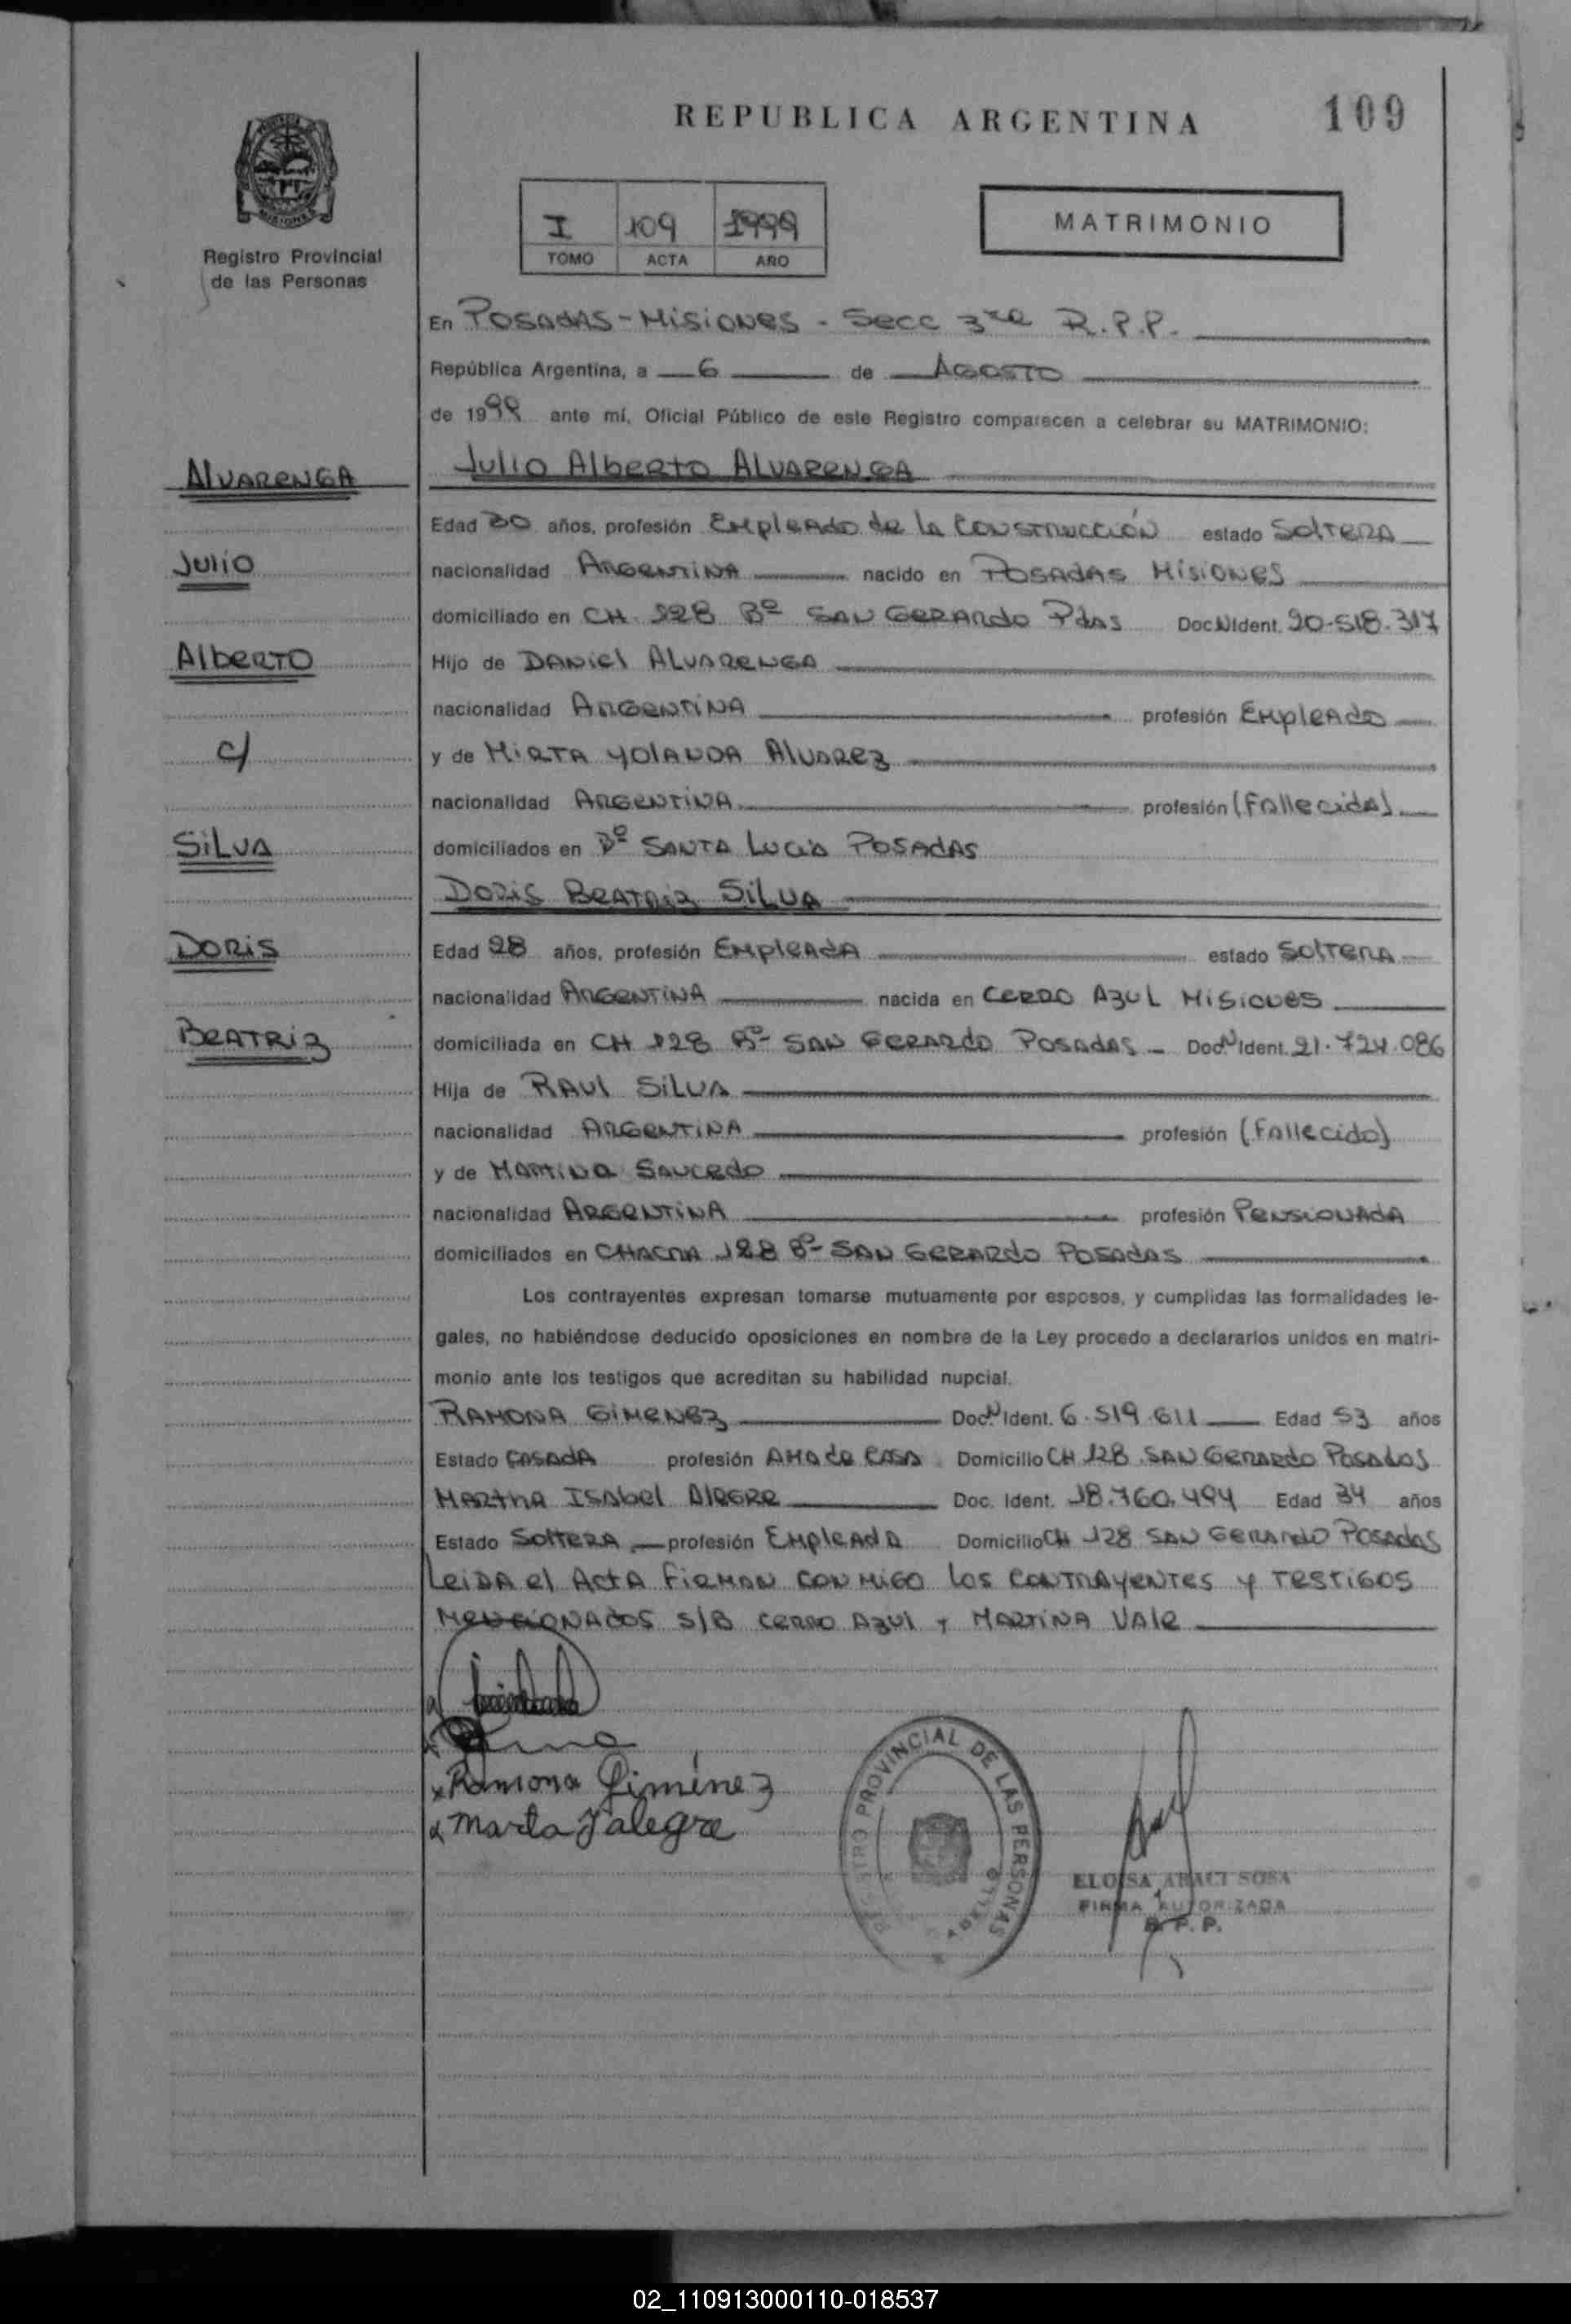 REPUBLICA ARGENTINA
109
Registro Provincial
de las Personas
I 109 1999
TOMO ACTA AÑO
MATRIMONIO
En POSADAS - MISIONES - Secc 3ra R.P.P.
República Argentina, a 6 de AGOSTO
de 1999 ante mí, Oficial Público de este Registro comparecen a celebrar su MATRIMONIO:
ALVARENGA
Julio Alberto ALVARENGA
Edad 30 años, profesión Empleado de la Construcción estado Soltera
Julio
nacionalidad ARGENTINA nacido en POSADAS MISIONES
domiciliado en CH 128 Bº SAN GERARDO Pdas Doc N Ident. 20.518.317
Alberto
Hijo de DANIEL ALVARENGA
nacionalidad ARGENTINA profesión Empleado
c/
y de MIRTA YOLANDA ALVAREZ
nacionalidad ARGENTINA profesión (Fallecida)
SILVA
domiciliados en Bº SANTA LUCIA POSADAS
DORIS BEATRIZ SILVA
DORIS
Edad 28 años, profesión Empleada estado Soltera
nacionalidad ARGENTINA nacida en CERRO AZUL MISIONES
BEATRIZ
domiciliada en CH 128 Bº SAN GERARDO POSADAS - Doc N Ident. 21.724.086
Hija de RAUL SILVA
nacionalidad ARGENTINA profesión (Fallecido)
y de MARTINA SAUCEDO
nacionalidad ARGENTINA profesión PENSIONADA
domiciliados en CHACRA 128 Bº SAN GERARDO POSADAS
Los contrayentes expresan tomarse mutuamente por esposos, y cumplidas las formalidades le-
gales, no habiéndose deducido oposiciones en nombre de la Ley procedo a declararlos unidos en matri-
monio ante los testigos que acreditan su habilidad nupcial.
RAMONA GIMENEZ Doc N Ident. 6.519.611 Edad 53 años
Estado CASADA profesión AMA de CASA Domicilio CH 128 SAN GERARDO POSADAS
MARTHA ISABEL ALEGRE Doc. Ident. 18.760.494 Edad 34 años
Estado Soltera profesión Empleada Domicilio CH 128 SAN GERARDO POSADAS
Leida el Acta firman conmigo los contrayentes y testigos
mencionados s/B CERRO AZUL y MARTINA VALE
x Ramona Giménez
x Marta J alegre
REGISTRO PROVINCIAL DE LAS PERSONAS
ELOISA ARACI SOSA
FIRMA AUTORIZADA
R. P. P.
02_110913000110-018537